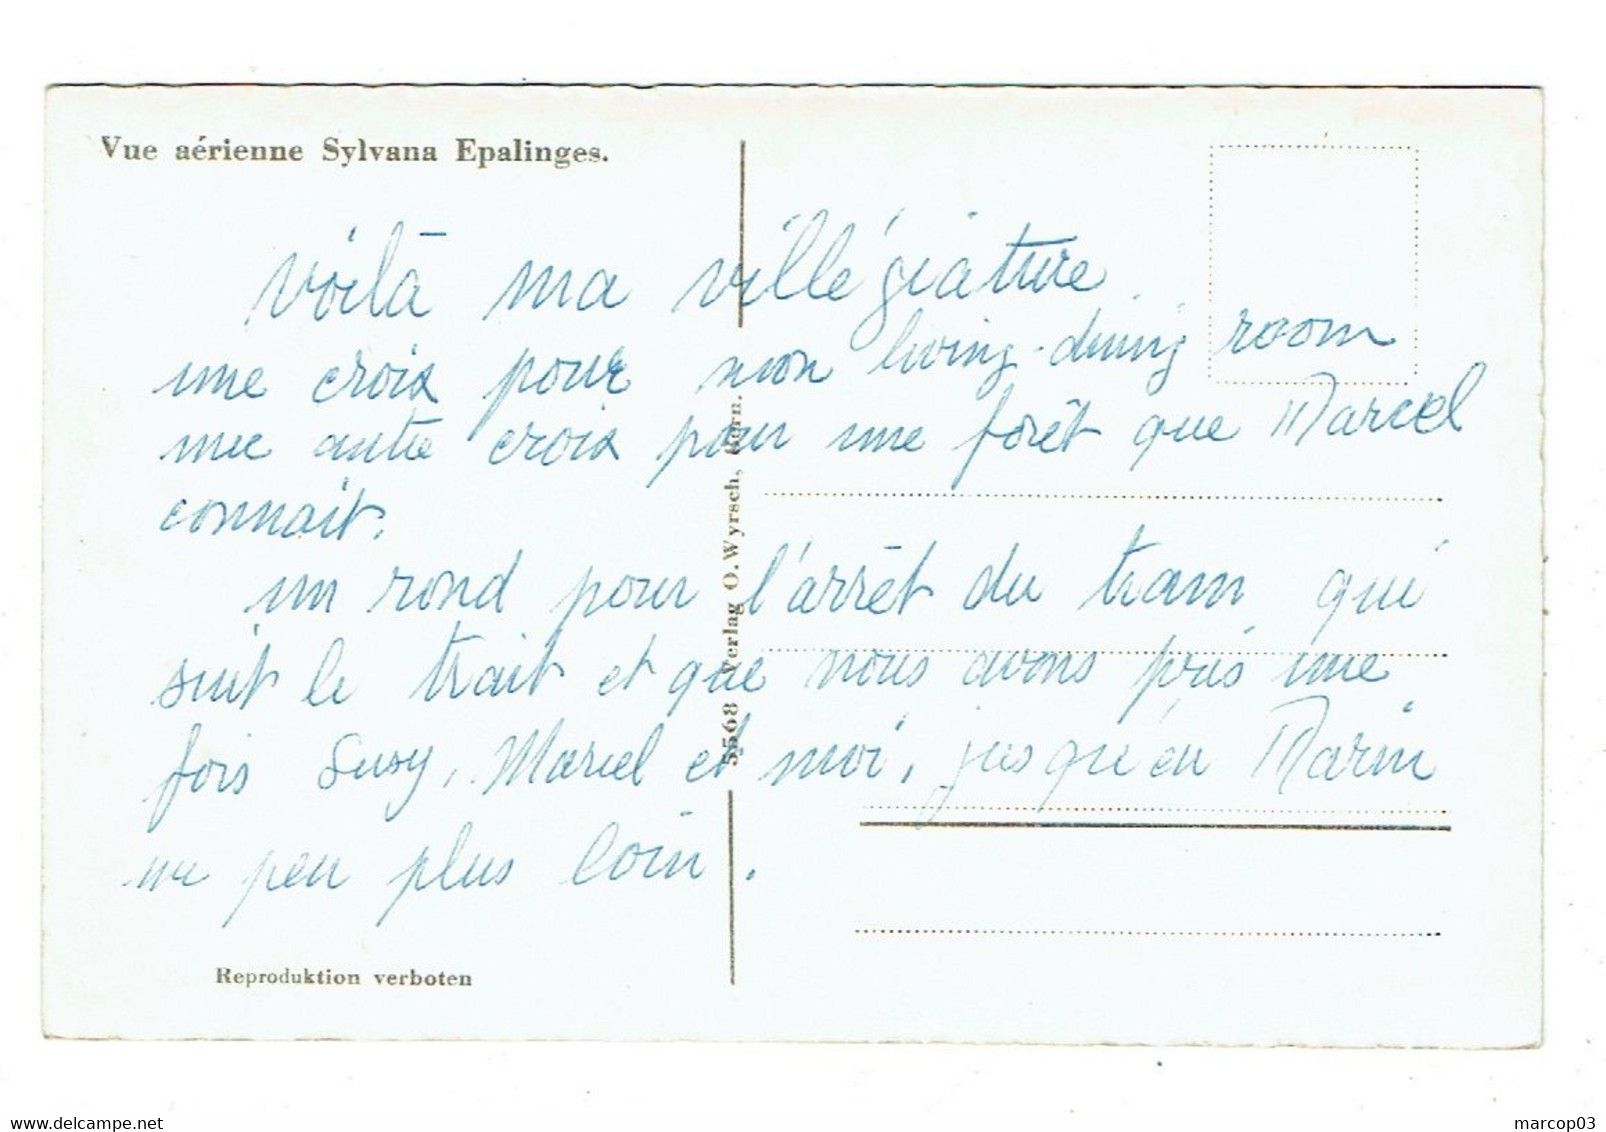 Vue aérienne Sylvana Epalinges.
Voilà ma villégiature
une croix pour mon living-dining room
une autre croix pour une forêt que Marcel
connait.
un rond pour l'arrêt du tram qui
suit le trait et que nous avons pris une
fois Susy, Marcel et moi, jusqu'en Marin
un peu plus loin.
5568 Verlag O. Wyrsch, Bern.
Reproduktion verboten
marcop03